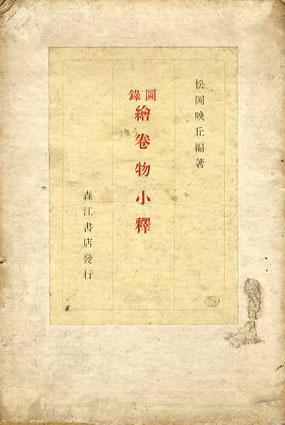 松岡映丘編著
圖錄
繪卷物小釋
森江書店發行